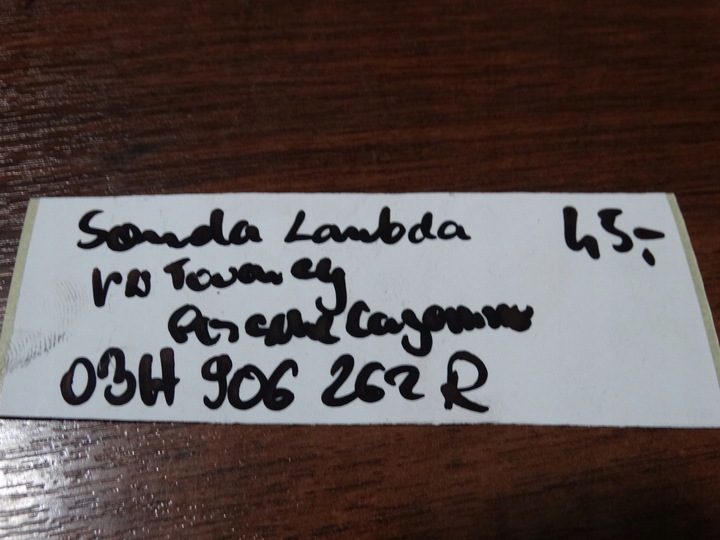 Sonda Lambda 45,-
VW Touareg
Porsche Cayenne
03H 906 262 R